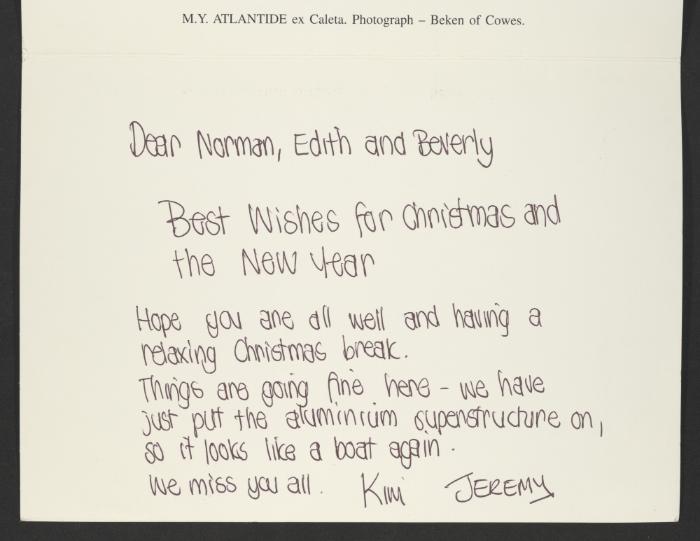 M.Y. ATLANTIDE ex Caleta. Photograph – Beken of Cowes.
Dear Norman, Edith and Beverly
Best Wishes for Christmas and
the New Year
Hope you are all well and having a
relaxing Christmas break.
Things are going fine here - we have
just put the aluminium superstructure on,
so it looks like a boat again.
We miss you all. Kim JEREMY